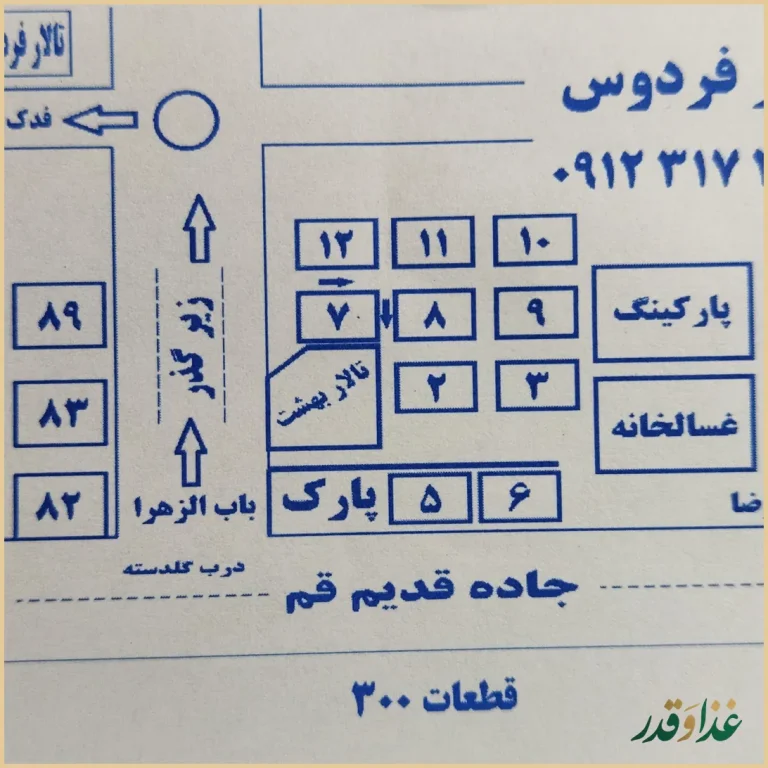 تالار
فردوس
فدک
۰۹۱۲ ۳۱۷
۱۲ ۱۱ ۱۰
پارکینگ
۸۹
زیر گذر
۷ ۸ ۹
تالار بهشت
۲ ۳
۸۳
غسالخانه
۸۲
باب الزهرا
پارک
۵ ۶
درب گلدسته
جاده قدیم قم
قطعات ۳۰۰
غذا و قدر